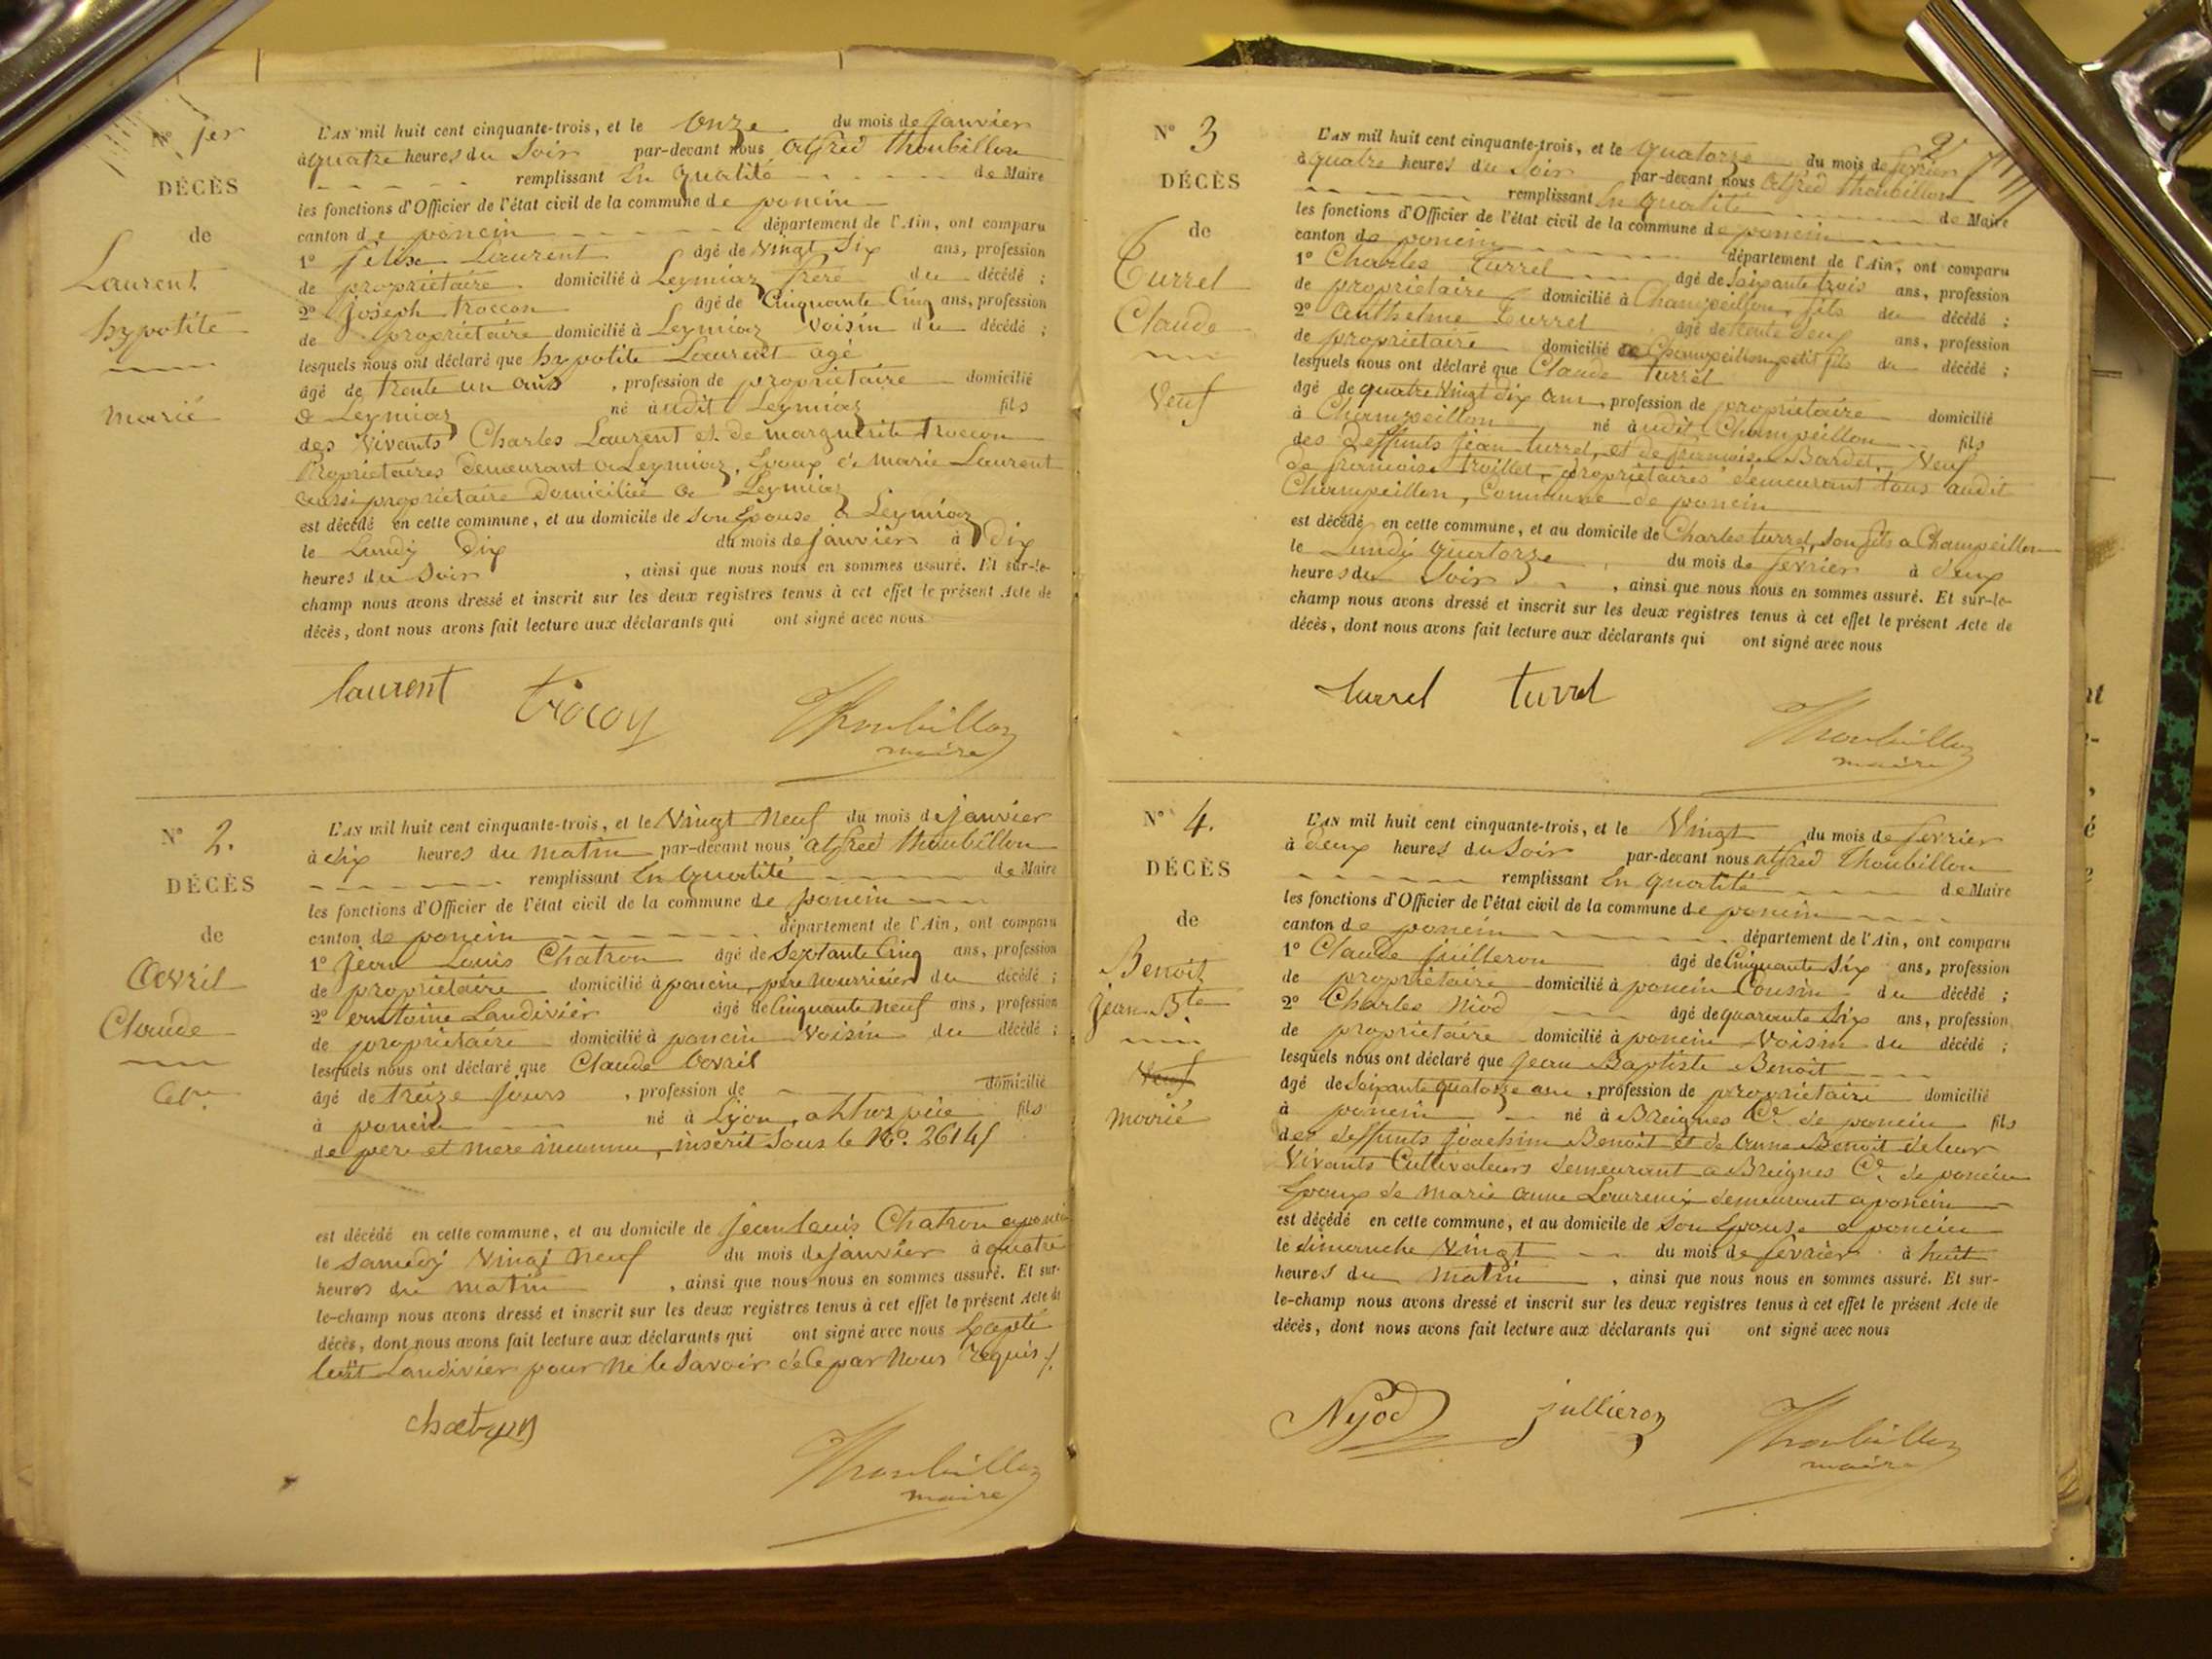 N° 1er
DÉCÈS
de
Laurent
hypolite
marié
L'AN mil huit cent cinquante-trois, et le Onze du mois de janvier
à quatre heures du Soir par-devant nous alfred thoubillon
remplissant En qualité de Maire
les fonctions d'Officier de l'état civil de la commune de poncin
canton de poncin département de l'Ain, ont comparu
1° felix Laurent âgé de Vingt Six ans, profession
de propriétaire domicilié à Leymiaz frère du décédé ;
2° Joseph troccon âgé de Cinquante Cinq ans, profession
de propriétaire domicilié à Leymiaz Voisin du décédé ;
lesquels nous ont déclaré que hypolite Laurent agé
âgé de trente un ans , profession de propriétaire domicilié
a Leymiaz né audit Leymiaz fils
des Vivants Charles Laurent et de marguerite troccon
Propriétaires demeurant a Leymiaz, Epoux de marie Laurent
aussi propriétaire domiciliée a Leymiaz
est décédé en cette commune, et au domicile de son Epouse a Leymiaz
le Lundi Dix du mois de janvier à Dix
heures du Soir , ainsi que nous nous en sommes assuré. Et sur-le-
champ nous avons dressé et inscrit sur les deux registres tenus à cet effet le présent Acte de
décès, dont nous avons fait lecture aux déclarants qui ont signé avec nous
laurent trocon Thoubillon
maire
N° 2.
DÉCÈS
de
Avril
Claude
L'AN mil huit cent cinquante-trois, et le Vingt Neuf du mois de janvier
à dix heures du matin par-devant nous alfred thoubillon
remplissant En qualité de Maire
les fonctions d'Officier de l'état civil de la commune de poncin
canton de poncin département de l'Ain, ont comparu
1° Jean Louis Chatron âgé de Septante Cinq ans, profession
de propriétaire domicilié à poncin, père nourricier du décédé ;
2° antoine Landivier âgé de Cinquante neuf ans, profession
de propriétaire domicilié à poncin Voisin du décédé ;
lesquels nous ont déclaré que Claude Avril
âgé de treize jours , profession de domicilié
à poncin né à Lyon, a fils
de père et mère inconnu, inscrit Sous le N°. 2614
est décédé en cette commune, et au domicile de jean louis Chatron a poncin
le samedi Vingt Neuf du mois de janvier à quatre
heures du matin , ainsi que nous nous en sommes assuré. Et sur-
le-champ nous avons dressé et inscrit sur les deux registres tenus à cet effet le présent Acte de
décès, dont nous avons fait lecture aux déclarants qui ont signé avec nous Excepté
ledit Landivier pour ne le Savoir de ce par Nous requis
chatron Thoubillon
maire
2
N° 3
DÉCÈS
de
Turrel
Claude
Veuf
L'AN mil huit cent cinquante-trois, et le quatorze du mois de fevrier
à quatre heures du Soir par-devant nous alfred thoubillon
remplissant En qualité de Maire
les fonctions d'Officier de l'état civil de la commune de poncin
canton de poncin département de l'Ain, ont comparu
1° Charles Turrel âgé de Soixante trois ans, profession
de propriétaire domicilié à Champeillon, fils du décédé ;
2° Anthelme Turrel âgé de trente deux ans, profession
de propriétaire domicilié a Champeillon petit fils du décédé ;
lesquels nous ont déclaré que Claude Turrel
âgé de quatre Vingt dix ans , profession de propriétaire domicilié
à Champeillon né audit Champeillon fils
des Deffunts jean turrel, et de françoise Bardet, Veuf
de françoise troillet, propriétaires demeurant tous audit
Champeillon, Commune de poncin
est décédé en cette commune, et au domicile de Charles turrel, son fils a Champeillon
le Lundi quatorze du mois de fevrier à deux
heures du Soir , ainsi que nous nous en sommes assuré. Et sur-le-
champ nous avons dressé et inscrit sur les deux registres tenus à cet effet le présent Acte de
décès, dont nous avons fait lecture aux déclarants qui ont signé avec nous
turrel turrel Thoubillon
maire
N° 4.
DÉCÈS
de
Benoit
jean Bte
Veuf
marié
L'AN mil huit cent cinquante-trois, et le Vingt du mois de fevrier
à deux heures du Soir par-devant nous alfred thoubillon
remplissant En qualité de Maire
les fonctions d'Officier de l'état civil de la commune de poncin
canton de poncin département de l'Ain, ont comparu
1° Claude juilleron âgé de Cinquante Six ans, profession
de propriétaire domicilié à poncin Cousin du décédé ;
2° Charles Niod âgé de quarante Six ans, profession
de propriétaire domicilié à poncin Voisin du décédé ;
lesquels nous ont déclaré que Jean Baptiste Benoit
âgé de Soixante quatorze ans , profession de propriétaire domicilié
à poncin né à Breignes Ce. de poncin fils
des deffunts joachim Benoit et de Anne Benoit de leur
Vivants Cultivateurs demeurant a Breignes Ce. de poncin
Epoux de marie anne demeurant a poncin
est décédé en cette commune, et au domicile de Son Epouse a poncin
le dimanche Vingt du mois de fevrier à huit
heures du matin , ainsi que nous nous en sommes assuré. Et sur-
le-champ nous avons dressé et inscrit sur les deux registres tenus à cet effet le présent Acte de
décès, dont nous avons fait lecture aux déclarants qui ont signé avec nous
Nyod jullieron Thoubillon
maire